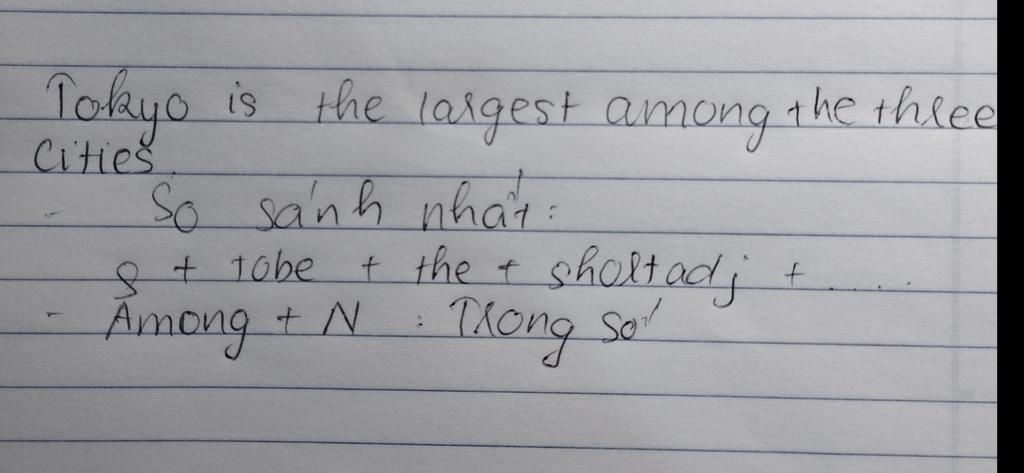 Tokyo is the largest among the three
cities.
- So sánh nhất:
S + tobe + the + short adj + .....
- Among + N : Trong số